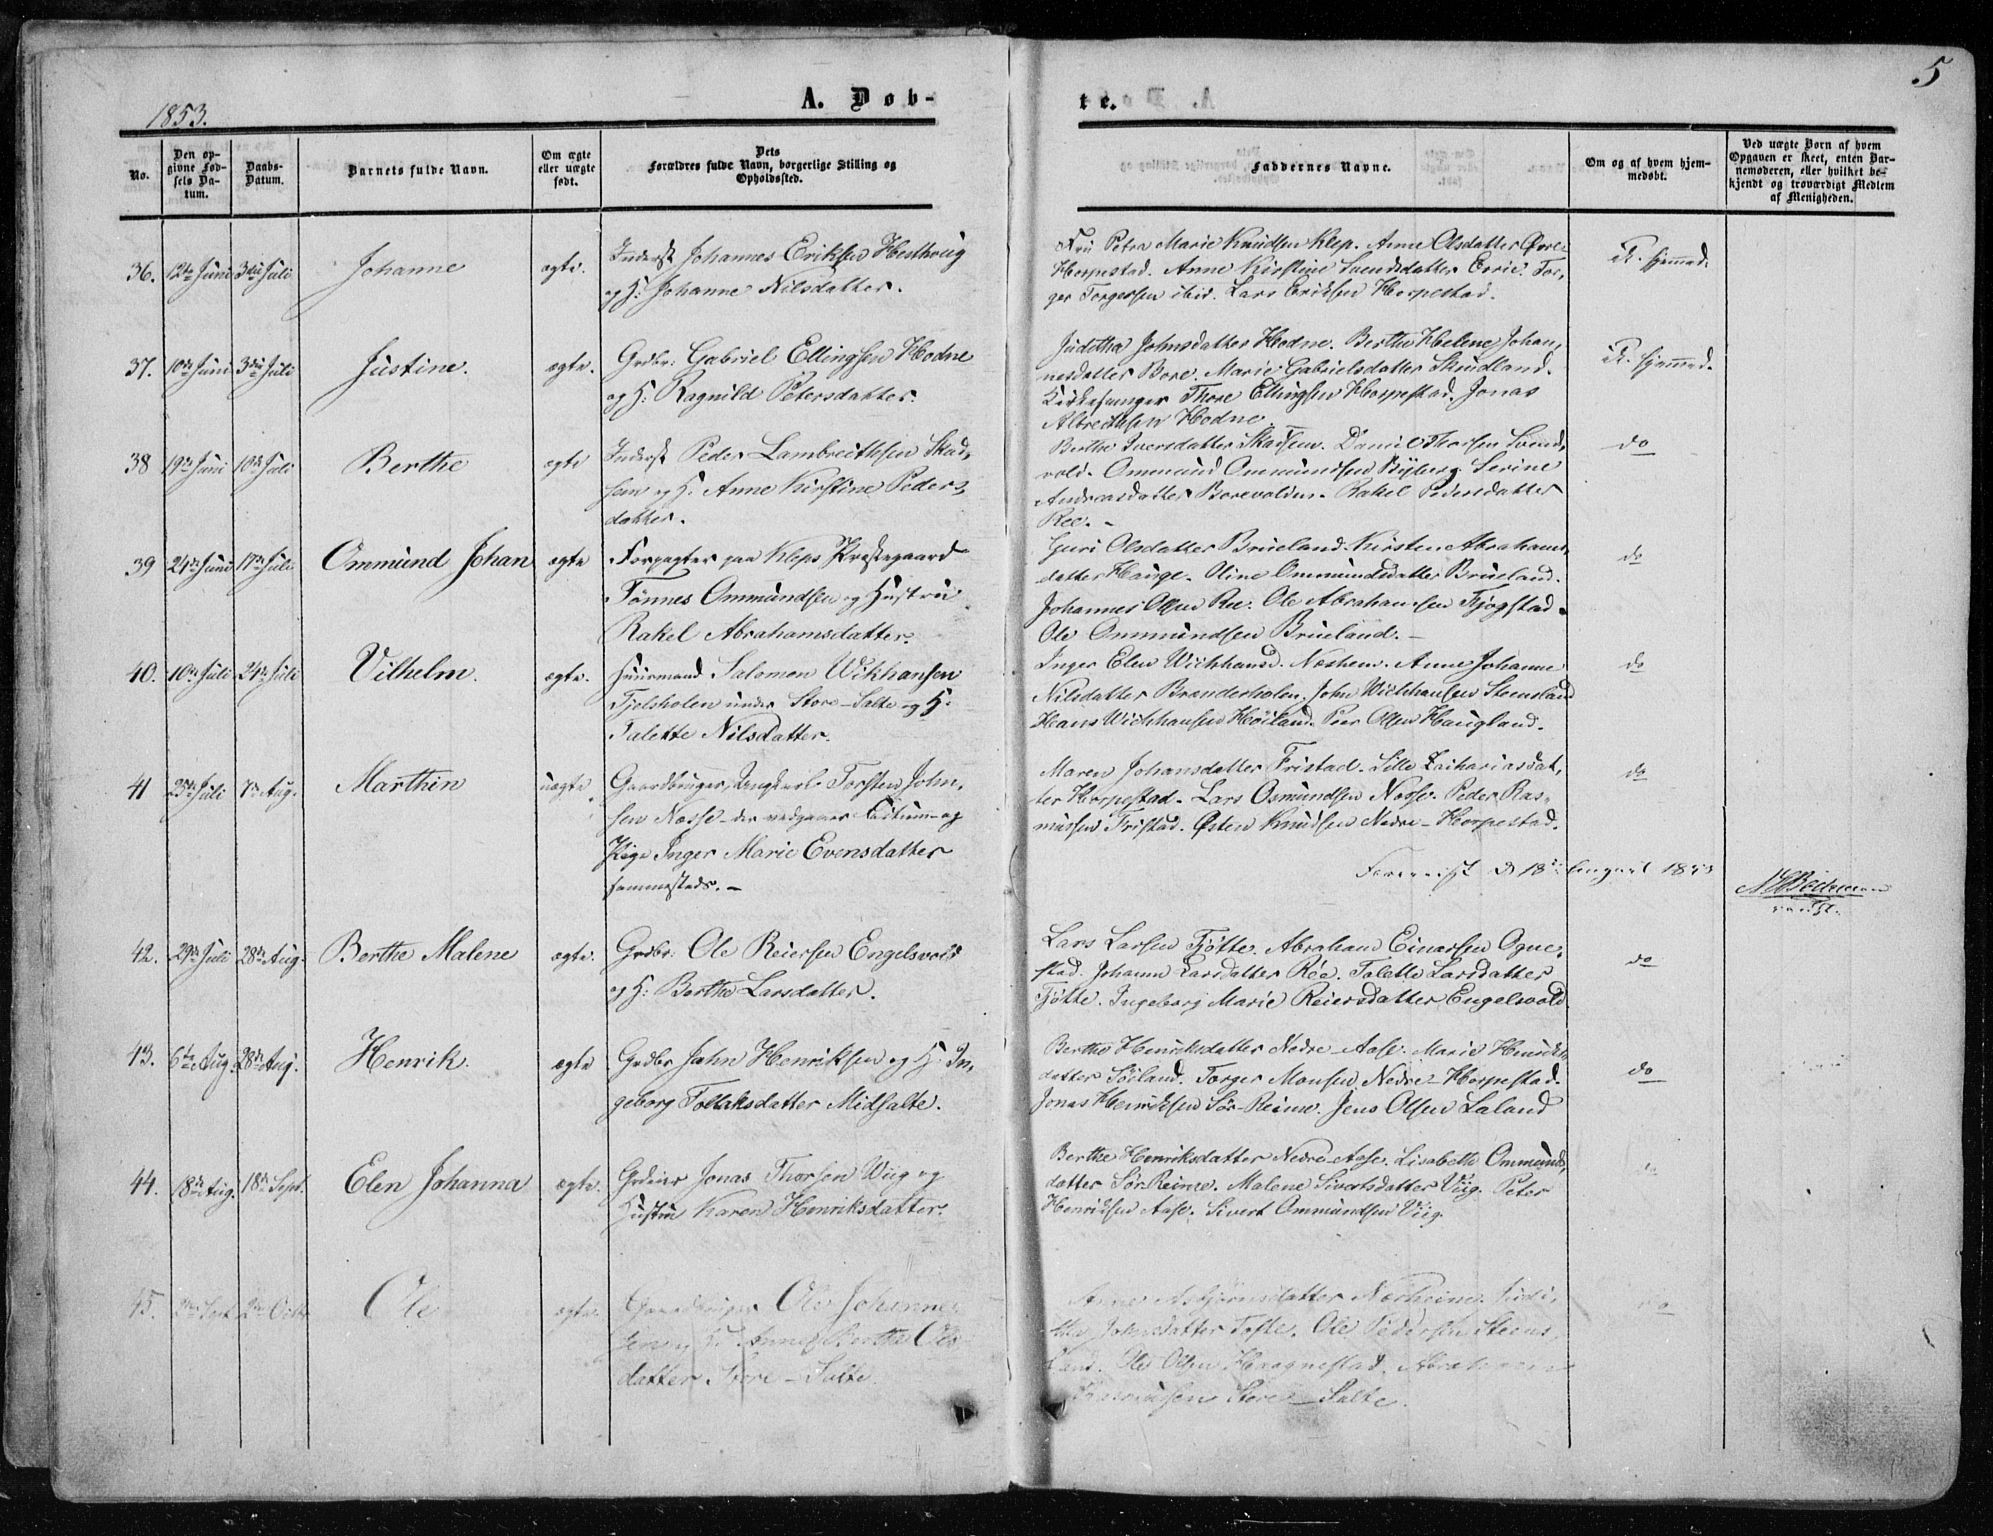 5
1853.
A. Døb-
te.
No.
Den op-
givne Fød-
sels Da-
tum.
Daabs-
Datum.
Barnets fulde Navn.
Om ægte
eller uægte
født.
Dets
Forældres fulde Navn, borgerlige Stilling og
Opholdssted.
Faddernes Navne.
Om og af hvem hjem-
medøbt.
Ved uægte Børn af hvem
Opgaven er skeet, enten Bar-
nemoderen, eller hvilket be-
kjendt og troværdigt Medlem
af Menigheden.
36. 12te Juni 3die Juli Johanne ægte. Inderst Johannes Eriksen Hesthvig
og H: Johanne Nilsdatter.
Fru Petra Marie Knudsen Klep. Anne Olsdatter Øvre
Horpestad. Anne Kirstine Svendsdatter Ervie. Tor,
ger Torgersen ibid. Lars Eriksen Horpestad.
R. hjemmed.
37. 10de Juni 3die Juli Justine. ægte. Grdbr: Gabriel Ellingsen Hodne
og H: Ragnild Petersdatter.
Juditha Johnsdatter Hodne. Berthe Helene Johan,
nesdatter Bore. Marie Gabrielsdatter Skudland.
Kirkesanger Thore Ellingsen Horpestad. Jonas
Albrectsen Hodne.
R. hjemmed.
38 19de Juni 10de Juli Berthe ægte Inderst Peder Lambreithsen Skad,
sem og H: Anne Kirstine Peders,
datter.
Berthe Iversdatter Skadsem. Daniel Thorsen Lend,
vold. Ommund Ommundsen Ryberg. Serine
Andreasdatter Borevolden. Rakel Pedersdatter
Ree. -
do
39 24de Juni 17de Juli Ommund Johan ægte Forpagter paa Kleps Præstegaard
Tønnes Ommundsen og Hustru
Rakel Abrahamsdatter.
Guri Olsdatter Brueland. Kirsten Abrahams,
datter Hauge. Oline Ommundsdatter Brueland.
Johannes Olsen Ree. Ole Abrahamsen Tjøgstad.
Ole Ommundsen Brueland. -
do
40. 10de Juli 24de Juli Vilhelm. ægte. Huusmand Salomon Wikhansen
Tjelsholen under Store-Salte og H.
Talette Nilsdatter.
Inger Elen Wichhansd. Næshem. Anne Johanne
Nilsdatter Brønderholen. John Wichhansen Steensland
Hans Wichhansen Høiland. Peer Olsen Haugland.
do
41 25de Juli 7de Aug. Marthin uægte Gaardbruger, Ungkarl Torsten John,
sen Nosse der vedgaaer og
Pige Inger Marie Evensdatter
sammesteds. -
Maren Johansdatter Fristad. Sille Zachariasdat,
ter Horpestad. Lars Osmundsen Nosse. Peder Ras,
mussen Fristad. Østen Knudsen Nedre-Horpestad.
do
d 18de August 1853
42. 29de Juli 28de Aug. Berthe Malene ægte. Grdbr: Ole Reiersen Engelsvold
og H: Berthe Larsdatter.
Lars Larsen Tjøtte. Abraham Einarsen Ogne,
stad. Johanne Larsdatter Røe. Talette Larsdatter
Tjøtte. Ingeborg Marie Reiersdatter Engelsvold
do
43. 6te Aug. 28de Aug. Henrik. ægte Grdbr John Henriksen og H. In,
geborg Tollaksdatter Midsalte.
Berthe Henriksdatter Nedre-Aase. Marie Henriks,
datter Søiland. Torger Monsen Nedre-Horpestad.
Jonas Henriksen Sør-Reime. Jens Olsen Laland
do
44. 18de Aug. 18de Sept. Elen Johanna ægte. Jonas Thorsen Wiig og
Hustru Karen Henriksdatter.
Berthe Henriksdatter Nedre-Aase. Lisabeth Ommunds,
datter Sør Reime. Malene Sivertsdatter Viig. Peter
Henriksen Aase. Sivert Ommundsen Viig.
do
45. Sept 2den Octbr Ole ægte. Gaardbruger Ole Johanne
sen og H. Anne Berthe Ols
datter Store-Salte.
Anne Asbjørnsdatter Næsheim. Judi,
the Johnsdatter Tofte. Ole Pedersen Steens,
land. Ole Olsen Haugnestad. Abraham
Rasmussen Store-Salte.
do